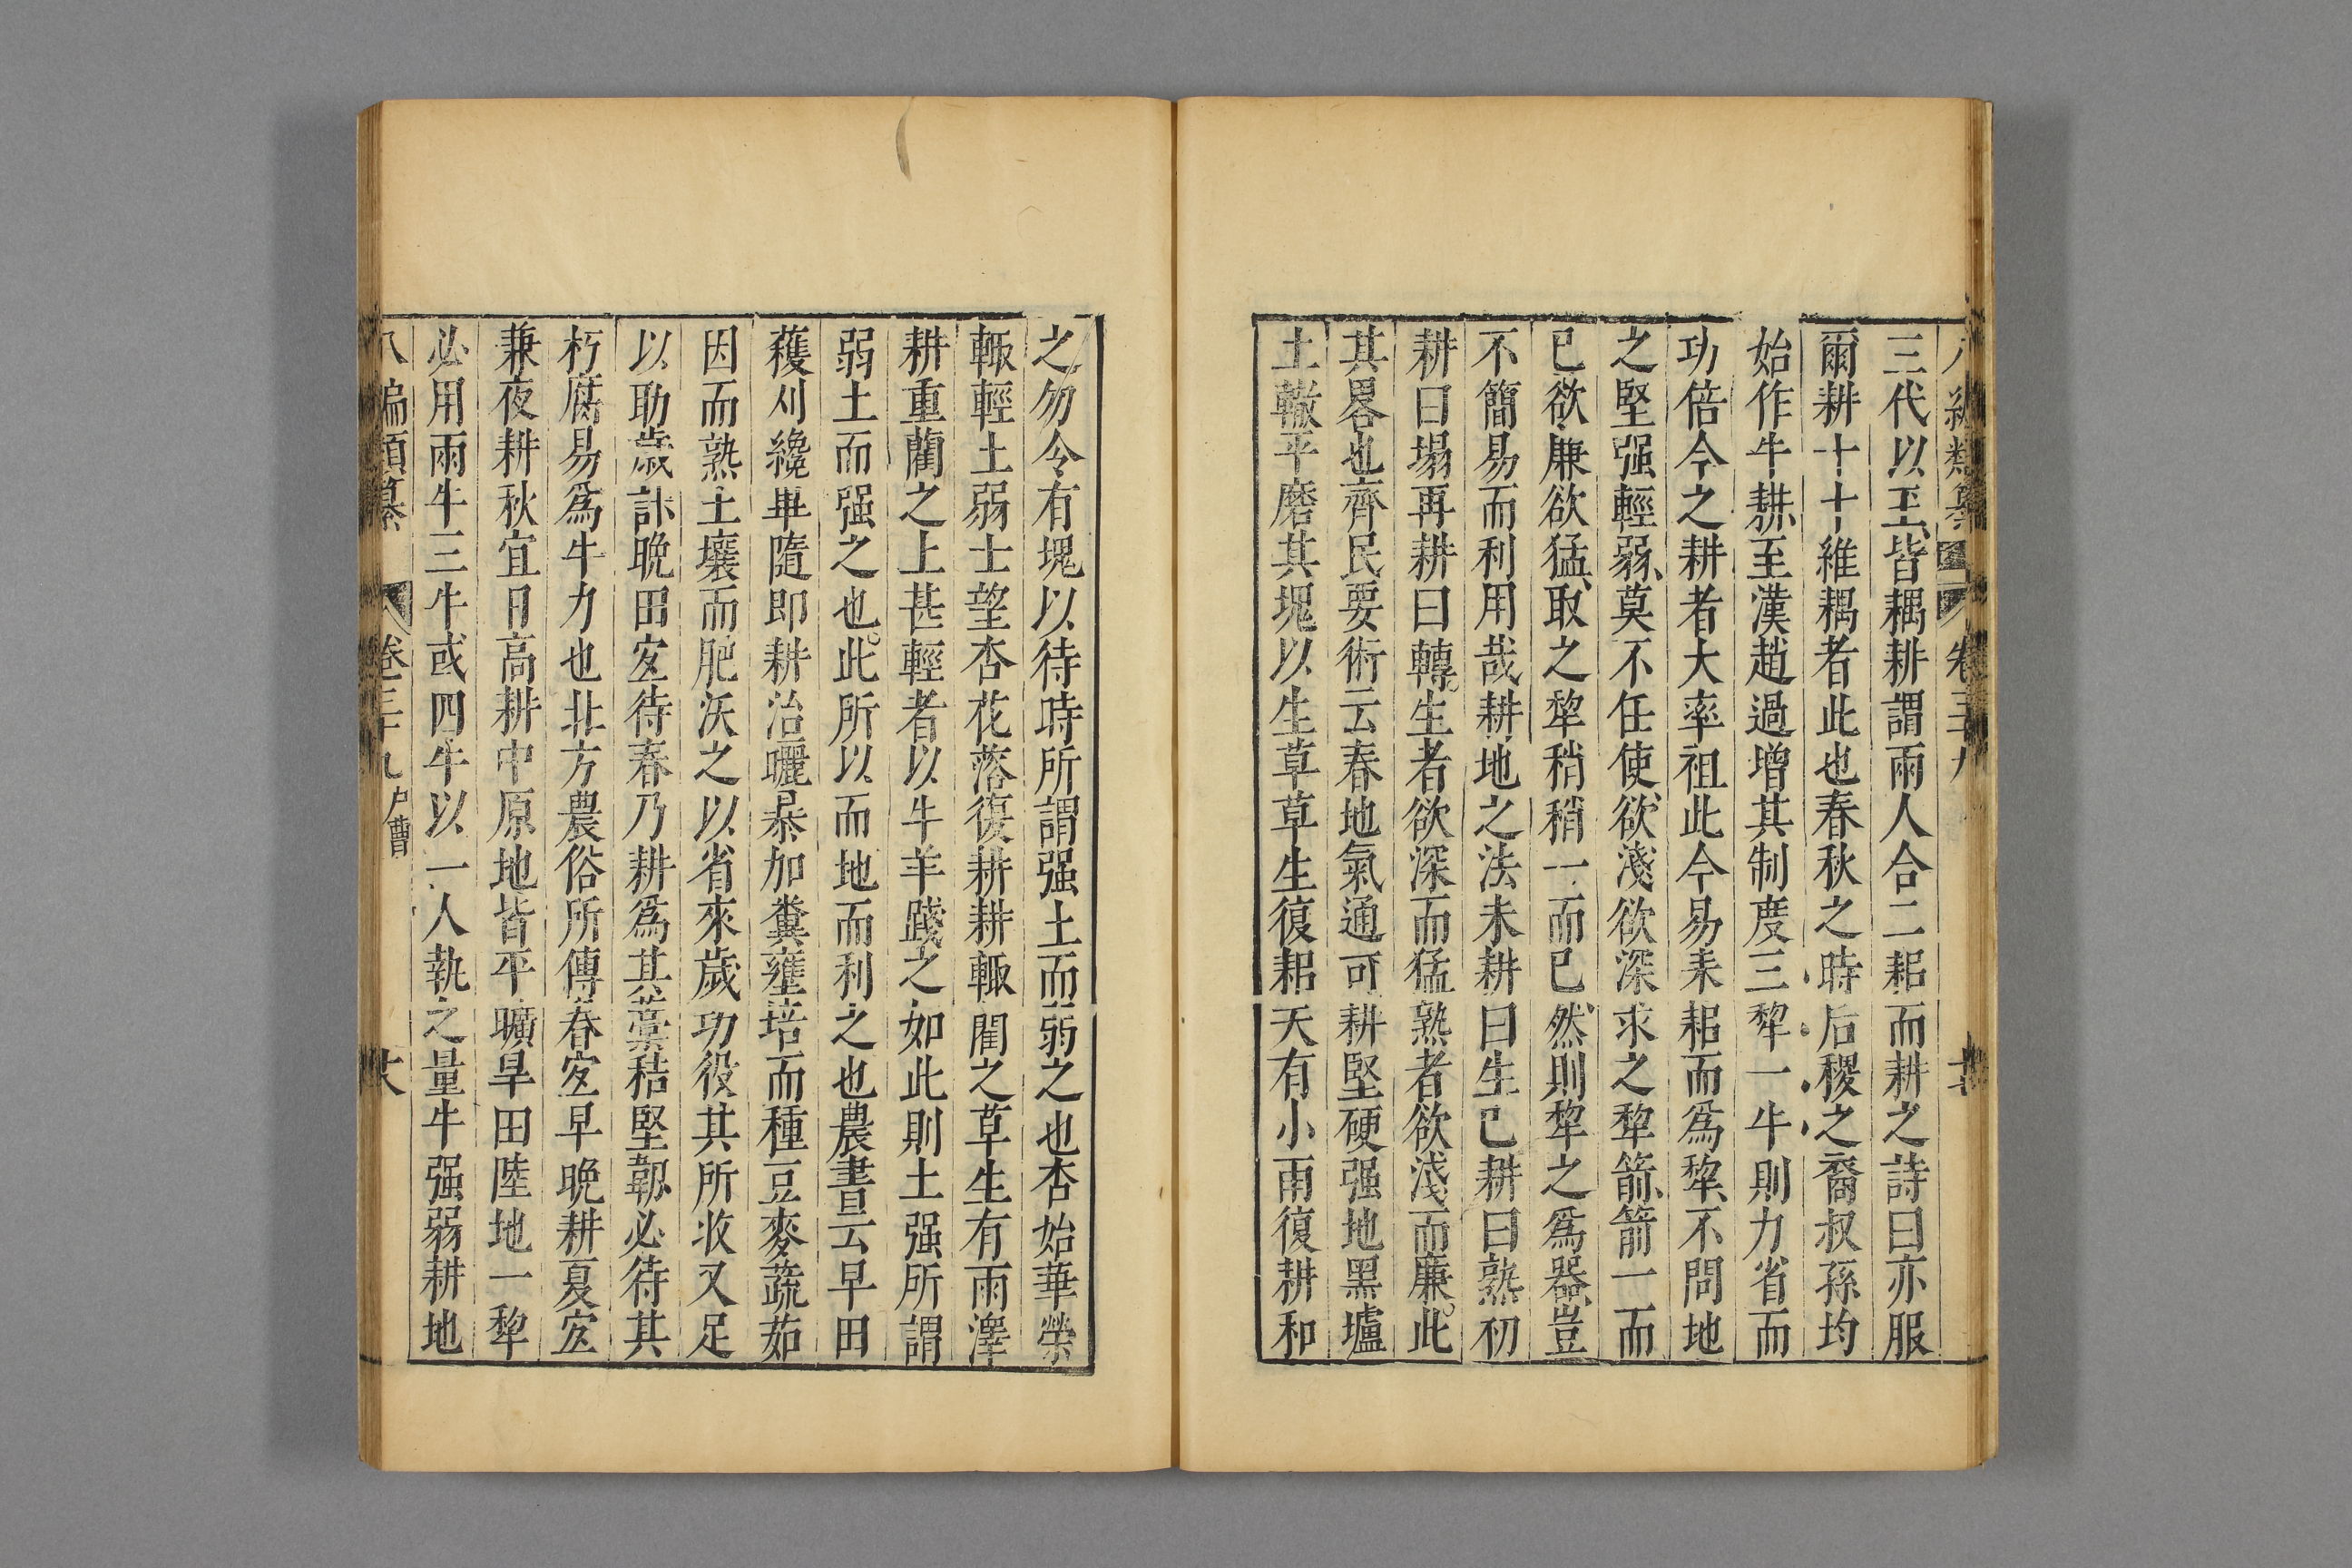 三代以上皆耦耕謂兩人合二耜而耕之詩曰亦服
爾耕十十維耦者此也春秋之時后稷之裔叔孫均
始作牛耕至漢趙過增其制度三犂一牛則力省而
功倍今之耕者大率祖此今易耒耜而爲犂不問地
之堅强輕弱莫不任使欲淺欲深求之犂箭箭一而
已欲廉欲猛取之犂稍稍一而已然則犂之爲器豈
不簡易而利用哉耕地之法未耕曰生已耕曰熟初
耕曰塌再耕曰轉生者欲深而猛熟者欲淺而廉此
其畧也齊民要術云春地氣通可耕堅硬强地黑壚
土轍平磨其塊以生草草生復耜天有小雨復耕和
之勿令有塊以待時所謂强土而弱之也杏始華榮
輙輕土弱士望杏花落復耕耕輙藺之草生有雨澤
耕重藺之上甚輕者以牛羊踐之如此則土强所謂
弱土而强之也此所以而地而利之也農書云早田
穫刈纔畢隨即耕治曬暴加糞壅培而種豆麥蔬茹
因而熟土壤而肥沃之以省來歲功役其所收又足
以助歲計晚田宐待春乃耕爲其藁秸堅韌必待其
朽腐易爲牛力也北方農俗所傳春宐早晚耕夏宐
兼夜耕秋宜日高耕中原地皆平曠旱田陸地一犂
必用兩牛三牛或四牛以一人執之量牛强弱耕地
八編類纂 卷三十九 户曹 六